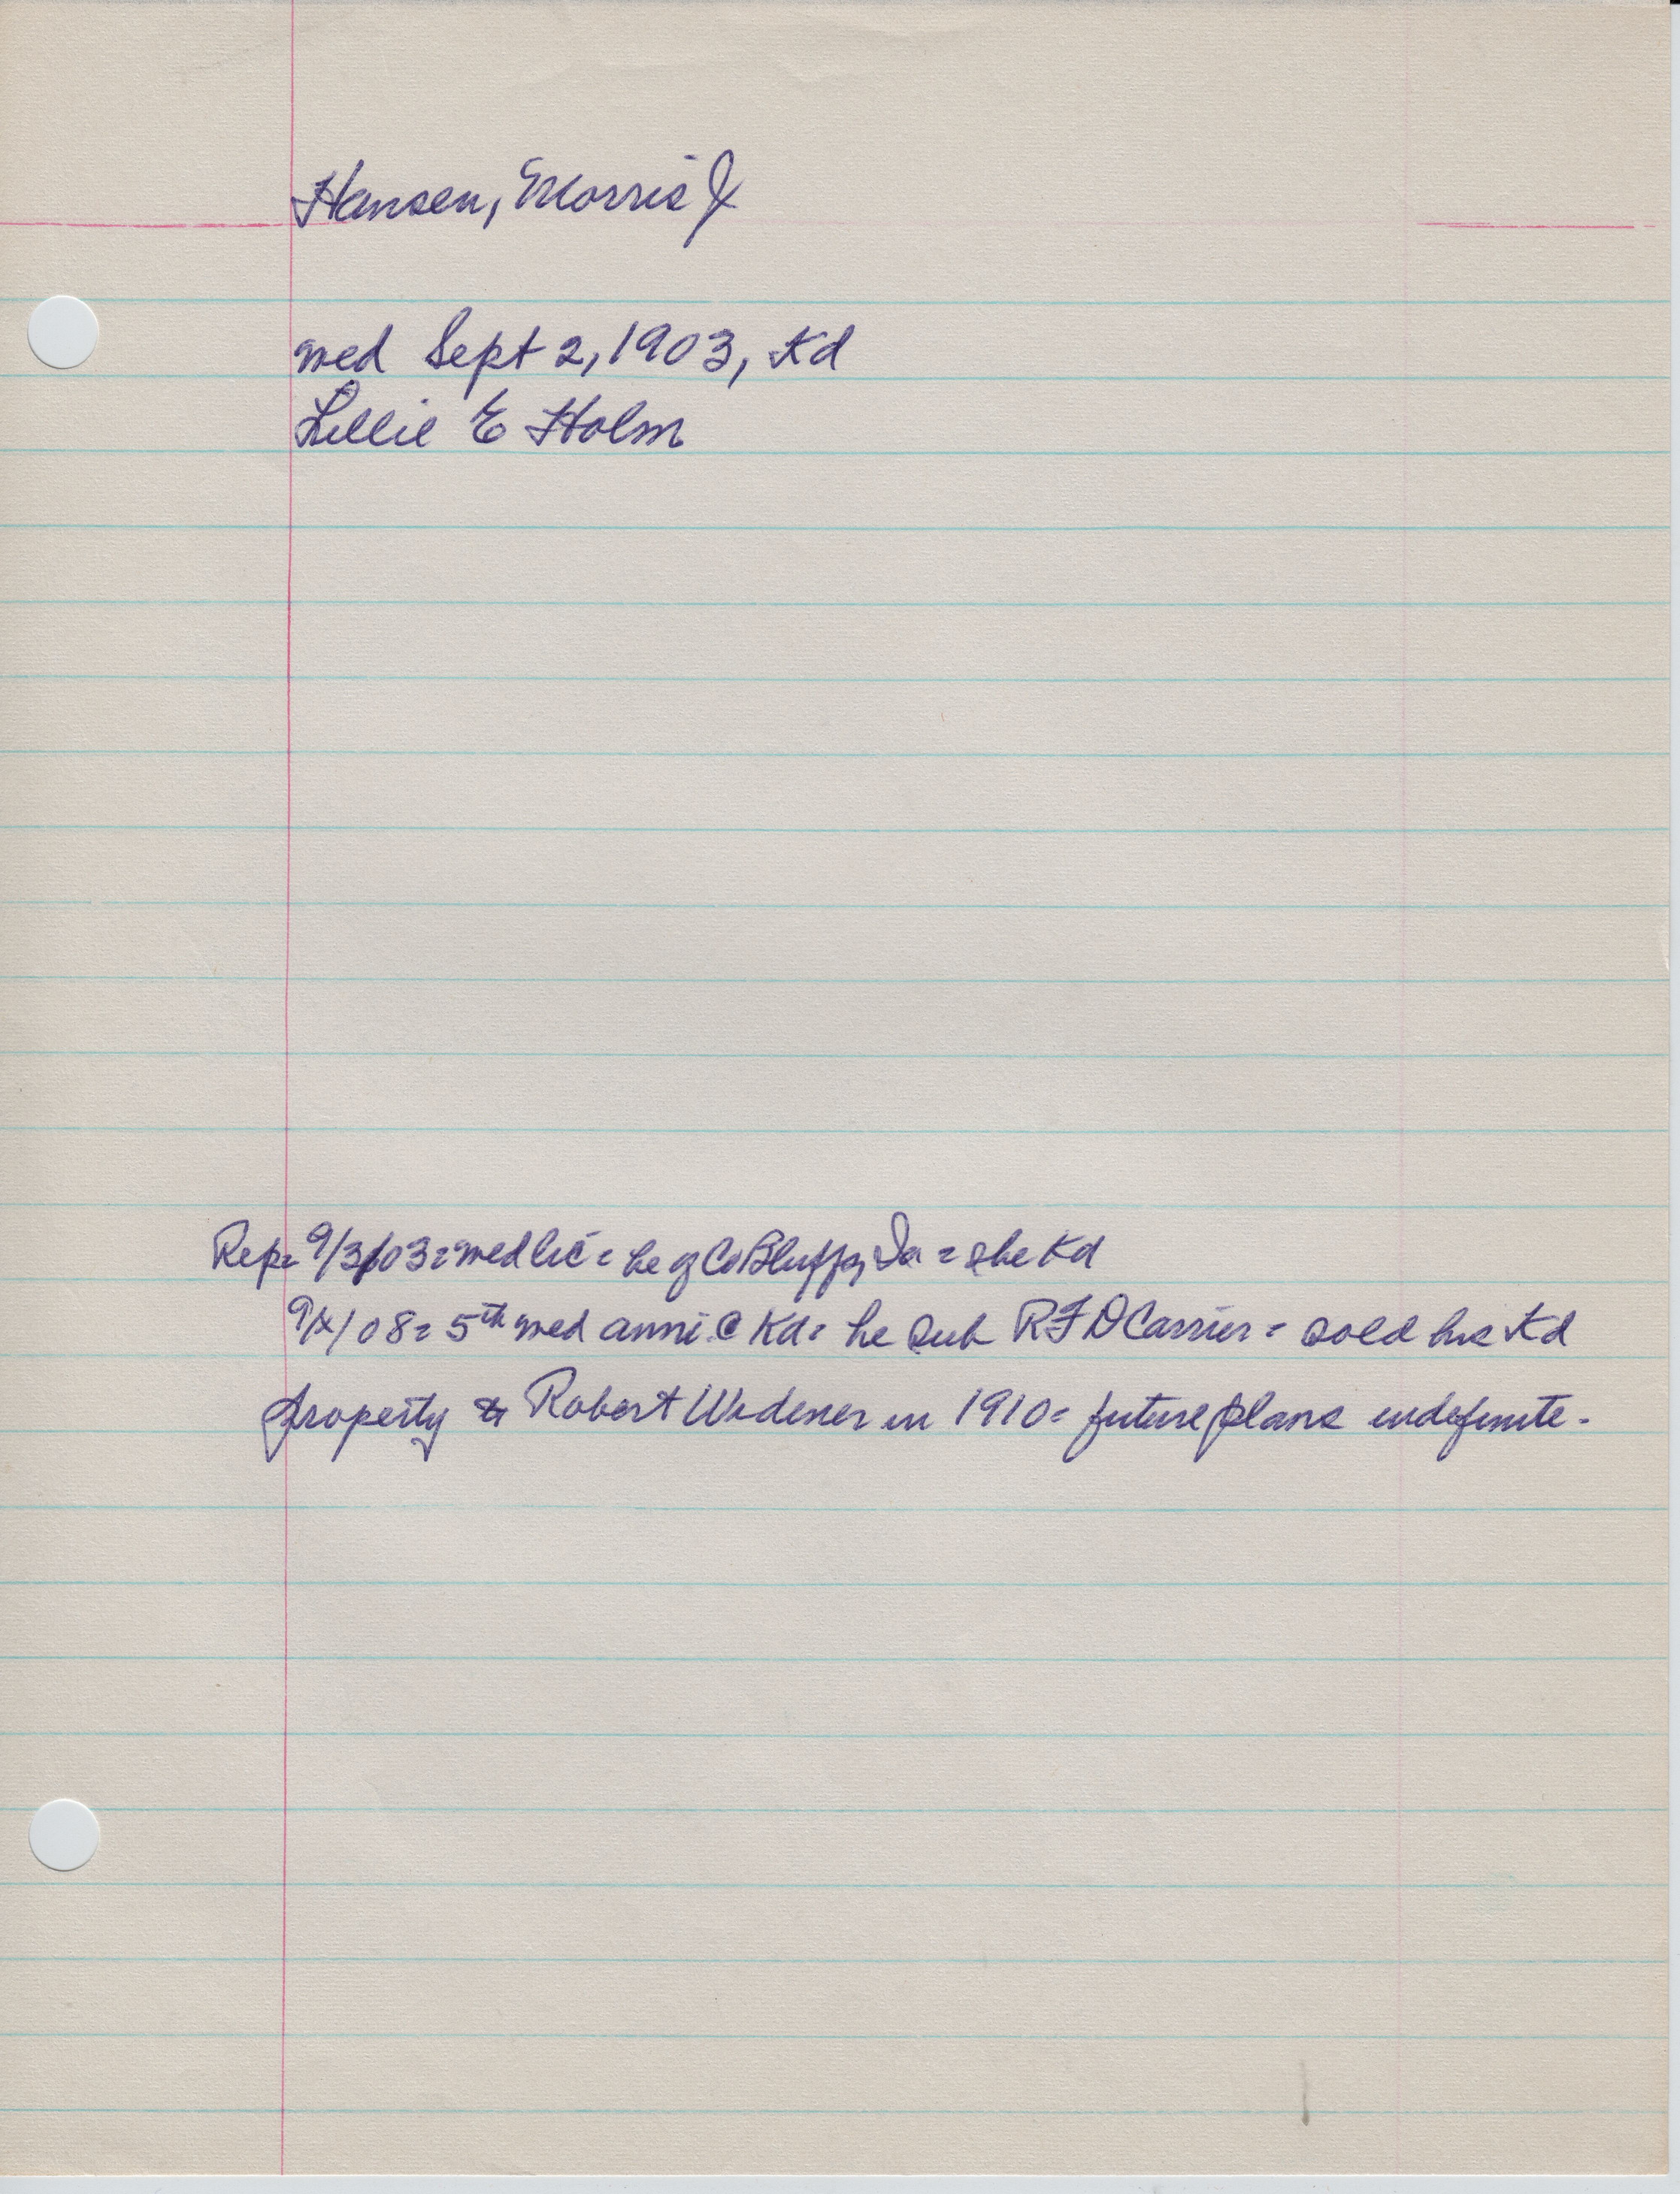 Hansen, Morris J
wed Sept 2, 1903, Kd
Lillie E Holm
Rep= 9/3/03= wed lic= he of Co Bluffs, Ia = she Kd
9/ /08= 5th wed anni @ Kd= he sub RFD Carrier= sold his Kd
property to Robert Widener in 1910= future plans indefinite-